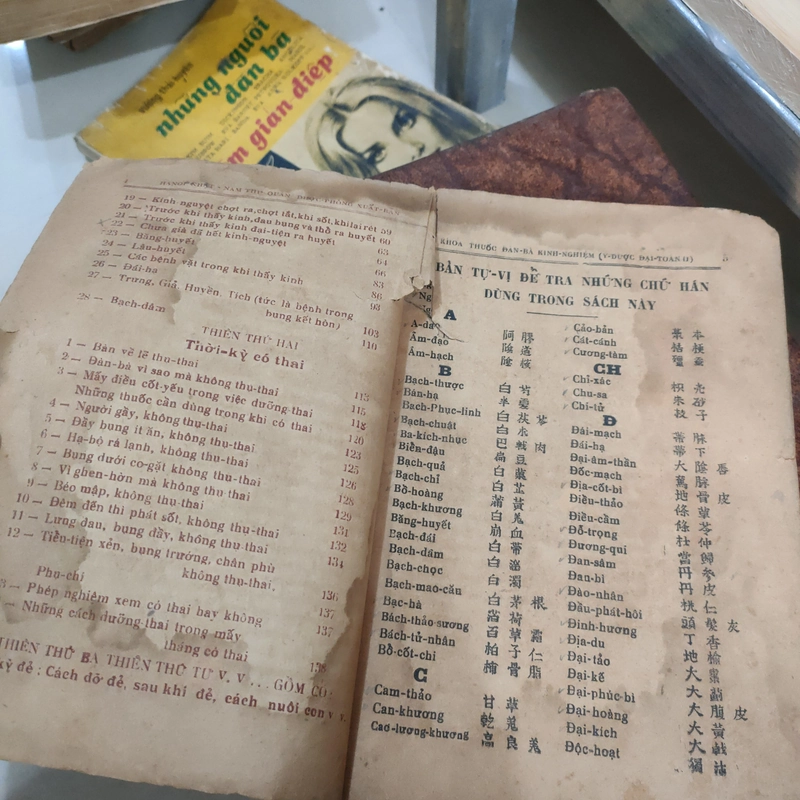 những người
đàn bà
làm gián điệp
19 — Kinh nguyệt chợt ra, chợt tắt, khi sốt, khi lai rét 59
20 — Trước khi thấy kinh, đau bụng và thồ ra huyết 60
21 — Trước khi thấy kinh đai-tiện ra huyết 63
22 — Chưa già đã hết kinh-nguyệt 64
23 — Băng-huyết
24 — Lâu-huyết 66
25 — Các bệnh vặt trong khi thấy kinh 83
26 — Đái-hạ 86
27 — Trưng, Giả, Huyền, Tích (tức là bệnh trong 93
bụng kết hòn) 103
28 — Bạch-dâm 110
THIÊN THỨ HAI
Thời-kỳ có thai
1 — Bàn về lẽ thụ-thai 113
2 — Đàn-bà vì sao mà không thụ-thai 115
3 — Mấy điều cốt-yếu trong việc dưỡng-thai 118
Những thuốc cần dùng trong khi có thai 120
4 — Người gầy, không thụ-thai 123
5 — Đầy bụng ít ăn, không thụ-thai 125
6 — Hạ-bộ rả lạnh, không thụ-thai 126
7 — Bụng dưới co-gặt không thụ-thai 128
8 — Vì ghen-hờn mà không thụ-thai 129
9 — Béo mập, không thụ-thai 131
10 — Đêm đến thì phát sốt, không thụ-thai 132
11 — Lưng đau, bụng đầy, không thụ-thai 134
12 — Tiểu-tiện xẻn, bụng trướng, chân phù
không thụ-thai.
Phụ-chỉ 136
Phép nghiệm xem có thai hay không 137
— Những cách dưỡng-thai trong mấy 137
tháng có thai 138
THIÊN THỨ BA THIÊN THỨ TƯ V. V ... GỒM CÓ
kỳ đẻ : Cách đỡ đẻ, sau khi đẻ, cách nuôi con v v.
KHOA THUỐC ĐÀN-BÀ KINH-NGHIỆM (Y-DƯỢC ĐẠI-TOÀN II) 5
BẢN TỰ-VỊ ĐỂ TRA NHỮNG CHỮ HÁN
DÙNG TRONG SÁCH NÀY
A
A-dao 阿膠
Âm-đạo 陰道
Âm-hạch 陰核
B
Bạch-thược 白芍
Bán-hạ 半夏
Bạch-Phục-linh 白茯苓
Bạch-chuật 白朮
Ba-kích-nhục 巴戟肉
Biển-đậu 扁豆
Bạch-quả 白菓
Bạch-chỉ 白芷
Bồ-hoàng 蒲黃
Bạch-khương 白羗
Băng-huyết 崩血
Bạch-đái 白帶
Bạch-dâm 白淫
Bạch-chọc 白濁
Bạch-mao-căn 白茅根
Bạc-hà 荷
Bách-thảo-sương 百草霜
Bách-tử-nhân 柏子仁
Bồ-cốt-chỉ 骨脂
C
Cam-thảo 甘草
Can-khương 乾羗
Cao-lương-khương 高良羗
Cảo-bản 本
Cát-cánh 桔梗
Cương-tàm
CH
Chỉ-xác 枳壳
Chu-sa 朱砂
Chi-tử 子
Đ
Đái-mạch 帶脉
Đái-hạ 帶下
Đại-âm-thần 大陰唇
Đốc-mạch 脉
Địa-cốt-bì 地骨皮
Điều-thảo 條草
Điều-cầm 條芩
Đỗ-trọng 杜仲
Đương-qui 當歸
Đan-sâm 丹參
Đan-bì 丹皮
Đào-nhân 桃仁
Đầu-phát-hôi 頭髮灰
Đinh-hương 丁香
Địa-du 地榆
Đại-táo 大棗
Đại-kế 大薊
Đại-phúc-bì 大腹皮
Đại-hoàng 大黃
Đại-kích 大戟
Độc-hoạt 獨活